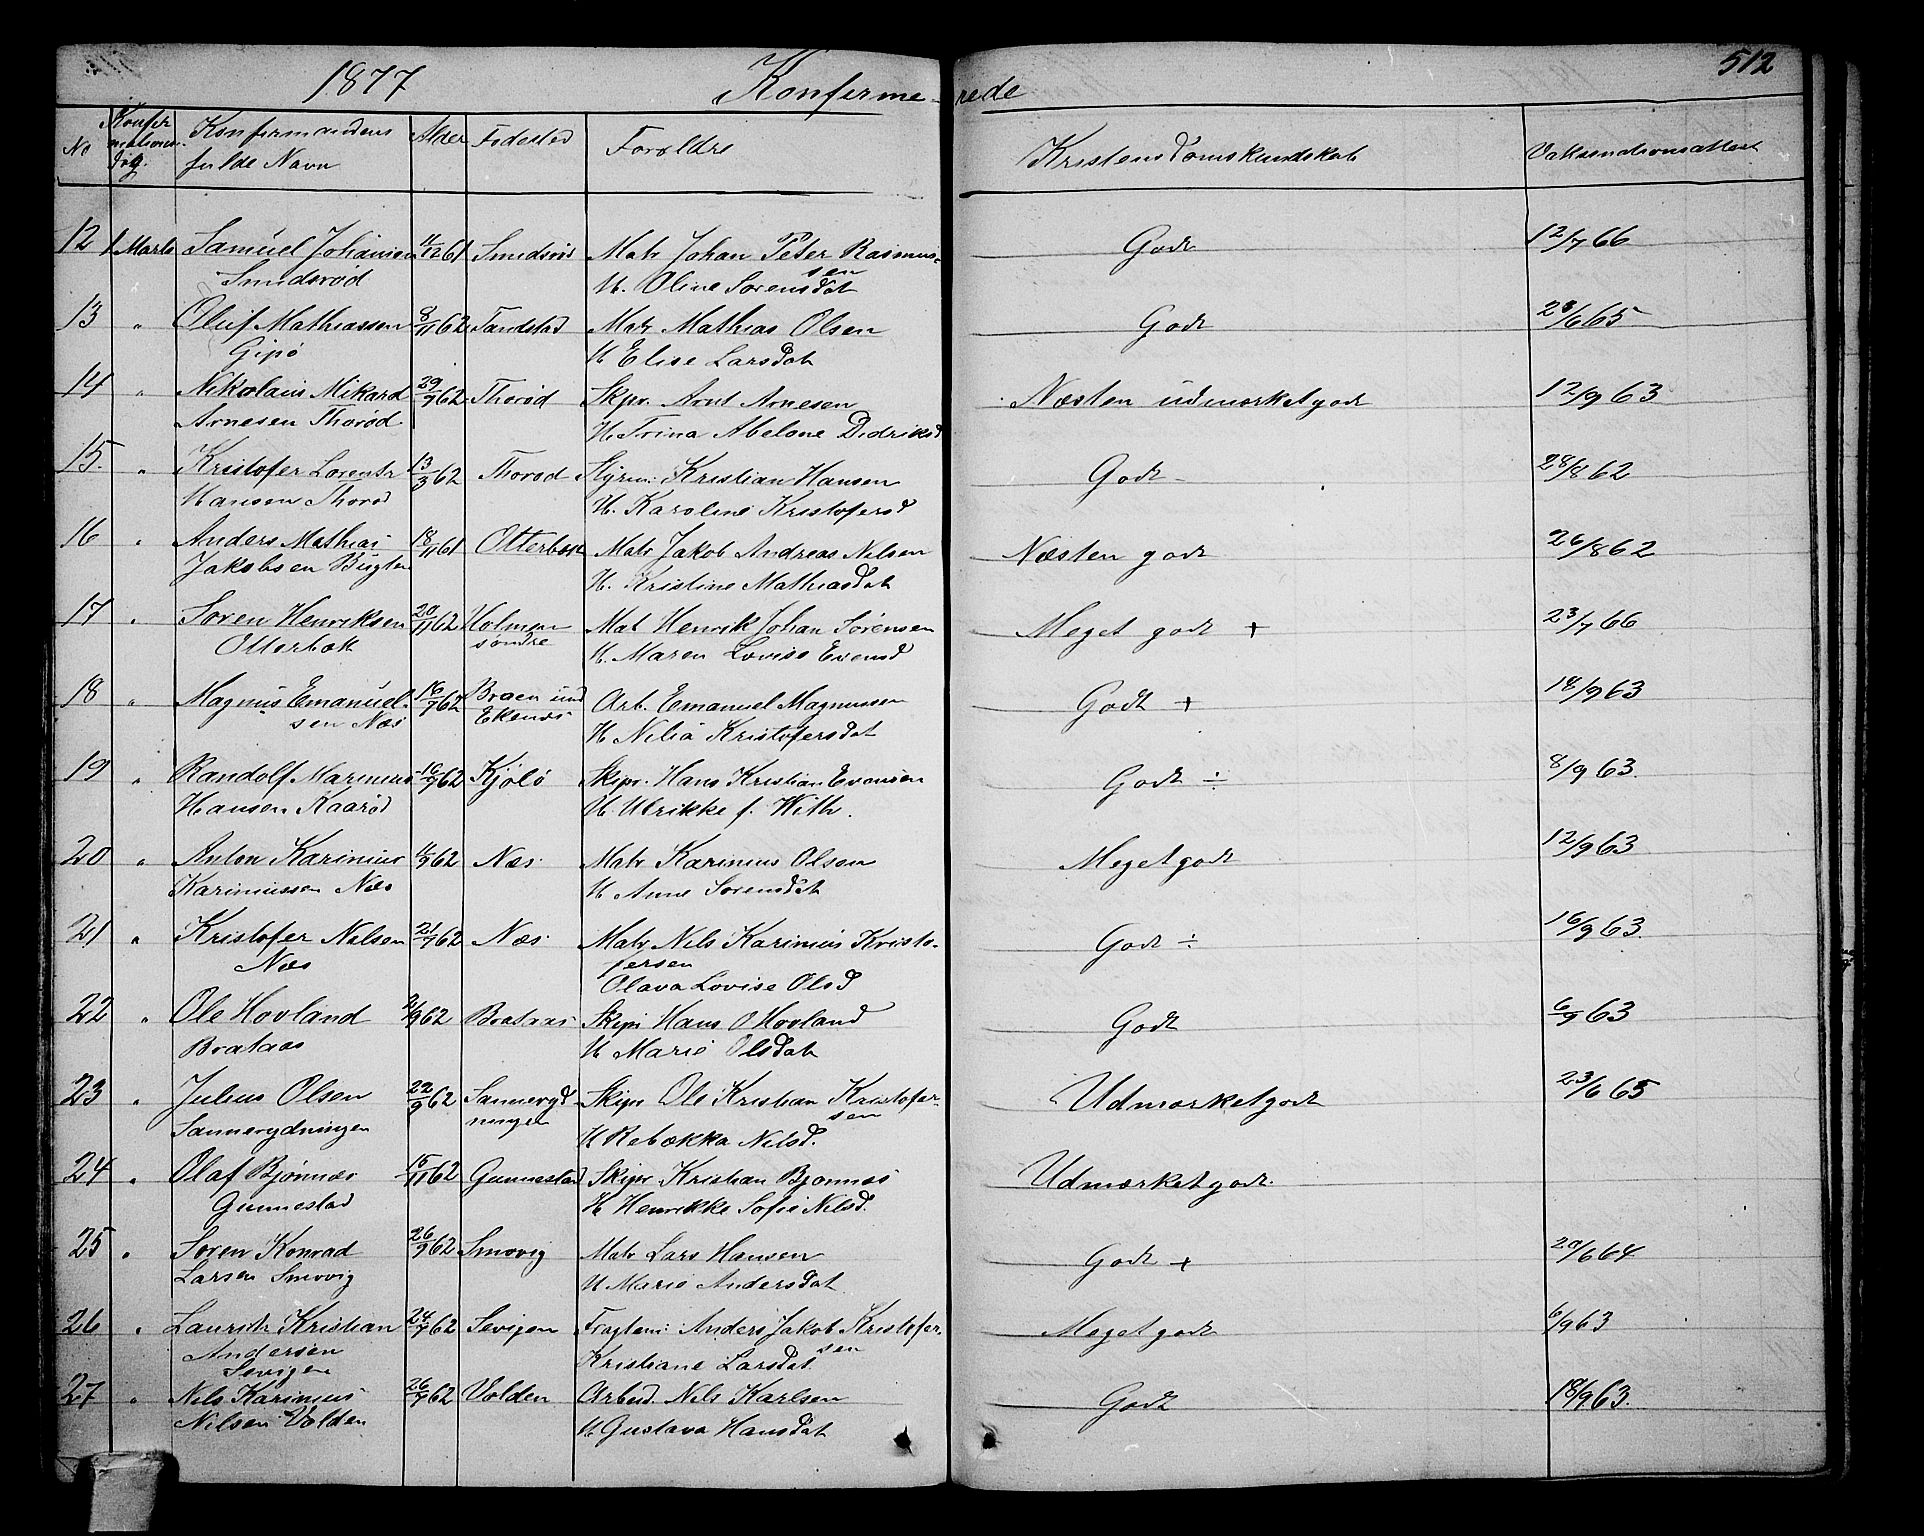 512
1877 Konferme-rede
No Konfer mations dag. Konfirmandens fulde Navn Alder Fødested Forældre Kristendomskundskab Vaksinationsattest
12 1 Marts Samuel Johansen 11/12 61 Smidsrød Matr Johan Peter Rasmus- Godt 12/7 66
Smidsrød sen
H. Oline Sørensdat
13 " Oluf Mathiassen 8/11 62 Sandstad Matr Mathias Olsen Godt 23/6 65
Gipø H Elise Larsdat
14 " Nikolaus Mikard 29/9 62 Thorød Skpr. Arnt Arnesen Næsten udmærket godt 12/9 63
Arnesen Thorød H Trina Abelone Didriksd
15. " Kristofer Lorents 13/3 62 Thorød Styrm: Kristian Hansen Godt 28/8 62
Hansen Thorød H. Karoline Kristofersd
16 " Anders Mathias 18/11 61 Otterbæk Matr Jakob Andreas Nilsen Næsten godt 26/8 62
Jakobsen Bugten H. Kristine Mathiasdat
17 " Søren Henriksen 20/11 62 Holmen Mat Henrik Johan Sørensen Meget godt + 23/7 66
Otterbæk søndre H. Maren Lovise Evensd
18 " Magnus Emanuel- 16/7 62 Braen und Arb. Emanuel Magnussen Godt + 18/9 63
sen Næs Ekenæs H Nilia Kristofersdat
19 " Randolf Marinius 16/7 62 Kjølø Skipr. Hans Kristian Evensen Godt ÷ 8/9 63
Hansen Kaarød H. Ulrikke f. With.
20 " Anton Karinius 11/9 62 Næs Matr Karinius Olsen Meget godt 12/9 63
Kariniussen Næs H Anne Sørensdat
21 " Kristofer Nilsen 21/7 62 Næs Matr Nils Karinius Kristo- Godt ÷ 16/9 63.
Næs fersen
Olava Lovise Olsd
22 " Ole Hovland 2/9 62 Brataas Skipr Hans O Hovland Godt 6/9 63
Brataas H Marie Olsdat
23 " Julius Olsen 22/9 62 Sannerydningen Skipr Ole Kristian Kristofer- Udmærket godt 23/6 65
Sannerydningen sen
H Rebækka Nilsd.
24 " Olaf Bjønnæs 15/11 62 Gunnestad Skipr Kristian Bjønnæs Udmærket godt.
Gunnestad H Henrikke Sofie Nilsd.
25 " Søren Konrad 26/9 62 Smovig Matr Lars Hansen Godt + 20/6 64
Larsen Smovig H Marie Andersdat
26 " Laurits Kristian 24/7 62 Sevigen Fragtem: Anders Jakob Kristofer- Meget godt 6/9 63
Andersen sen
Sevigen Kristiane Larsdat
27 " Nils Karinius 26/7 62 Volden Arbeid. Nils Karlsen Godt 18/9 63.
Nilsen Volden H Gustava Hansdat